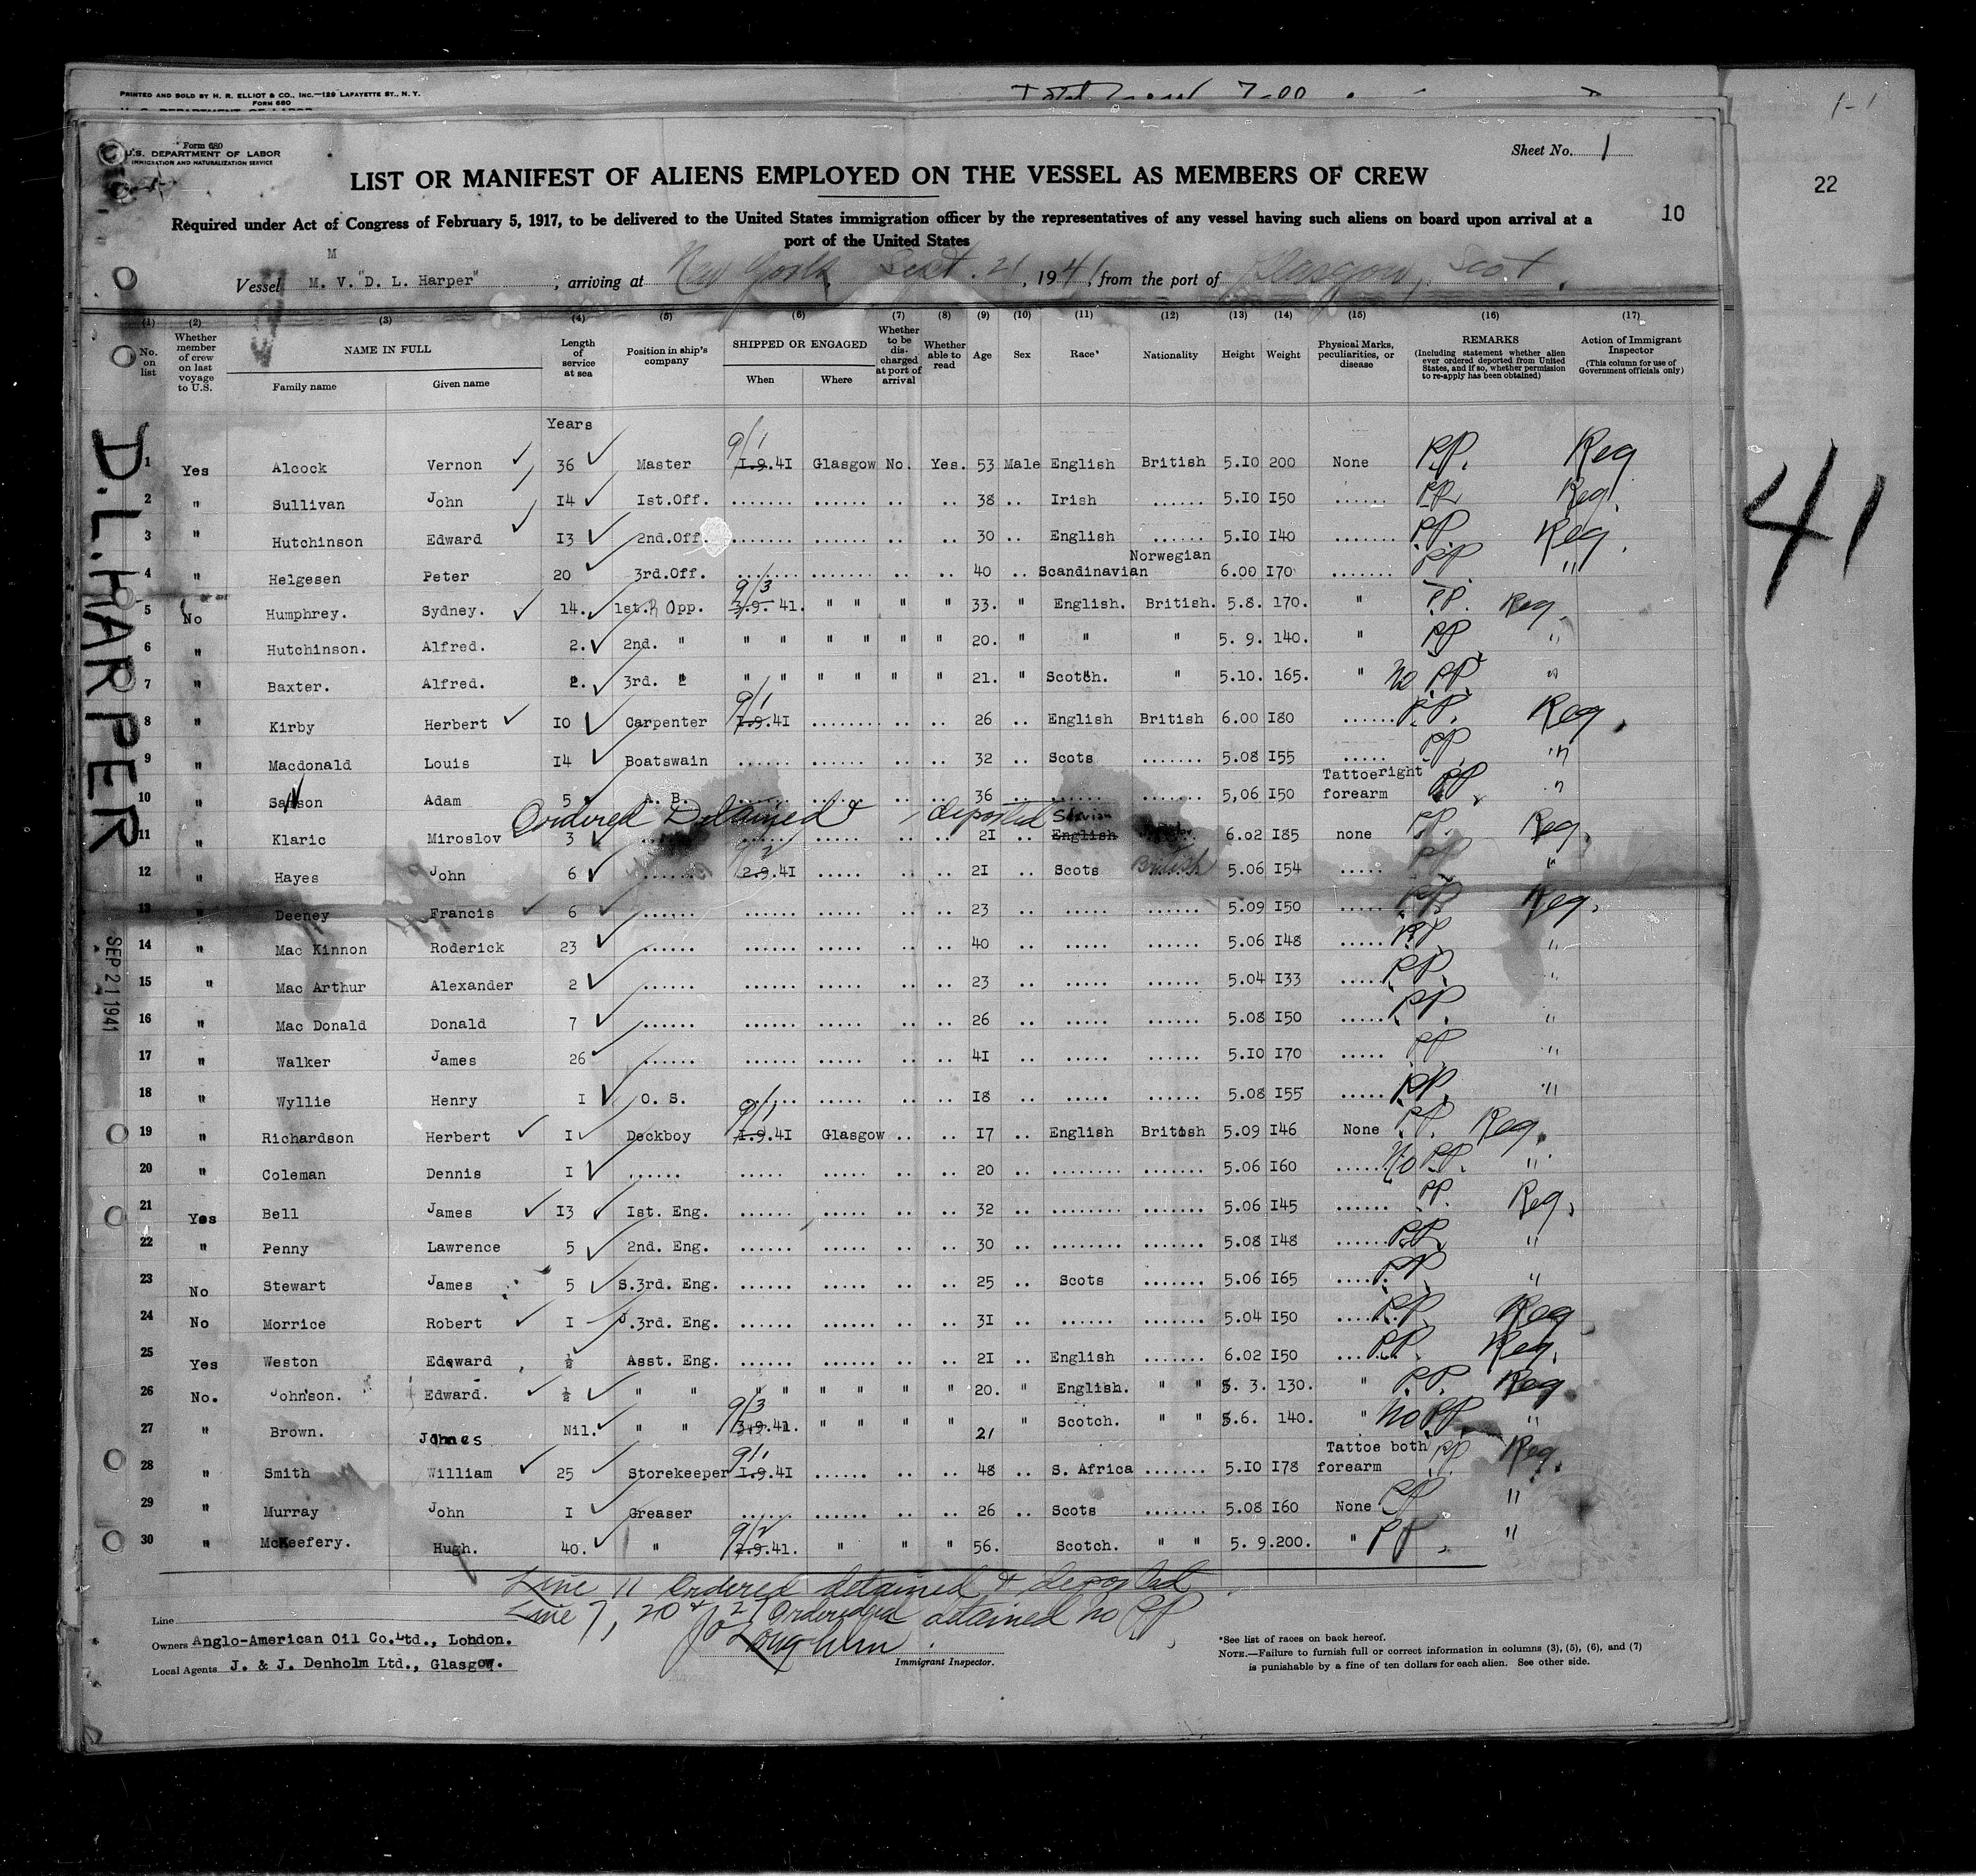 PRINTED AND SOLD BY H. R. ELLIOT & CO., INC.—129 LAFAYETTE ST., N. Y.
FORM 680
1-1
22
41
Form 680
U.S. DEPARTMENT OF LABOR
IMMIGRATION AND NATURALIZATION SERVICE
Sheet No. 1
LIST OR MANIFEST OF ALIENS EMPLOYED ON THE VESSEL AS MEMBERS OF CREW
10
Required under Act of Congress of February 5, 1917, to be delivered to the United States immigration officer by the representatives of any vessel having such aliens on board upon arrival at a
port of the United States
M
Vessel M. V. "D. L. Harper" ; arriving at New York, Sept. 21, 1941, from the port of Glasgow, Scot.
(1) (2) (3) (4) (5) (6) (7) (8) (9) (10) (11) (12) (13) (14) (15) (16) (17)
No. on list | Whether member of crew on last voyage to U.S. | NAME IN FULL Family name Given name | Length of service at sea | Position in ship's company | SHIPPED OR ENGAGED When Where | Whether to be discharged at port of arrival | Whether able to read | Age | Sex | Race* | Nationality | Height | Weight | Physical Marks, peculiarities, or disease | REMARKS (Including statement whether alien ever ordered deported from United States, and if so, whether permission to re-apply has been obtained) | Action of Immigrant Inspector (This column for use of Government officials only)
Years
1 Yes Alcock Vernon 36 Master 9/1 1.9.41 Glasgow No. Yes. 53 Male English British 5.10 200 None P.P. Reg
2 " Sullivan John 14 1st.Off. ....... ...... .. .. 38 .. Irish ...... 5.10 150 ...... PP Reg.
3 " Hutchinson Edward 13 2nd.Off. ........ ....... .. .. 30 .. English ...... 5.10 140 ....... PP Reg.
4 " Helgesen Peter 20 3rd.Off. ........ ....... .. .. 40 .. Scandinavian Norwegian 6.00 170 ....... PP "
5 No Humphrey. Sydney. 14. 1st.R Opp. 9/3 3.9. 41. " " " " 33. " English. British. 5.8. 170. " P.P. Reg.
6 " Hutchinson. Alfred. 2. 2nd. " " " " " " " 20. " " " 5. 9. 140. " PP "
7 " Baxter. Alfred. 2. 3rd. " " " " " " " 21. " Scotch. " 5.10. 165. " No PP "
8 " Kirby Herbert 10 Carpenter 9/1 1.9.41 ........ .. .. 26 .. English British 6.00 180 ...... P.P. Reg.
9 " Macdonald Louis 14 Boatswain ...... ...... .. .. 32 .. Scots ....... 5.08 155 ..... PP "
10 " Samson Adam 5 A. B. ...... ...... .. .. 36 .. ...... ....... 5,06 150 Tattoe right forearm PP "
Ordered Detained & deported
11 " Klaric Miroslov 3 ...... ...... ..... .. .. 21 .. English 6.02 185 none PP. Reg.
12 " Hayes John 6 ...... 9/2 2.9.41 ..... .. .. 21 .. Scots British 5.06 154 ..... PP "
13 " Deeney Francis 6 ...... ...... ..... .. .. 23 .. ..... ...... 5.09 150 ..... PP Reg.
14 " Mac Kinnon Roderick 23 ...... ...... ..... .. .. 40 .. ..... ...... 5.06 148 ..... PP "
15 " Mac Arthur Alexander 2 ...... ...... ..... .. .. 23 .. ..... ....... 5.04 133 ..... PP. "
16 " Mac Donald Donald 7 ...... ...... ..... .. .. 26 .. ..... ....... 5.08 150 ..... PP. "
17 " Walker James 26 ...... ...... ..... .. .. 41 .. ..... ....... 5.10 170 ..... PP "
18 " Wyllie Henry 1 O. S. ...... ..... .. .. 18 .. ..... ....... 5.08 155 ..... PP. "
19 " Richardson Herbert 1 Deckboy 9/1 1.9.41 Glasgow .. .. 17 .. English British 5.09 146 None PP. Reg.
20 " Coleman Dennis 1 ...... ...... ...... .. .. 20 .. ......... ....... 5.06 160 ..... No PP. "
21 Yes Bell James 13 1st. Eng. ...... ...... .. .. 32 .. ......... ....... 5.06 145 ...... PP. Reg.
22 " Penny Lawrence 5 2nd. Eng. ...... ...... .. .. 30 .. ......... ....... 5.08 148 ...... PP. "
23 No Stewart James 5 S.3rd. Eng. ...... ...... .. .. 25 .. Scots ....... 5.06 165 ..... PP "
24 No Morrice Robert 1 J.3rd. Eng. ...... ...... .. .. 31 .. ...... ....... 5.04 150 ..... P.P. Reg
25 Yes Weston Edeward ½ Asst. Eng. ...... ...... .. .. 21 .. English ....... 6.02 150 .... PP. Reg.
26 No. Johnson. Edward. ½ " " " " " " " " 20. " English. " " 5. 3. 130. " P.P. Reg
27 " Brown. James Nil. " " 9/3 3.9.41. " " " " 21 " Scotch. " " 5.6. 140. " No PP "
28 " Smith William 25 Storekeeper 9/1 1.9.41 ...... .. .. 48 .. S. Africa ....... 5.10 178 Tattoe both forearm PP Reg.
29 " Murray John 1 Greaser ...... ...... .. .. 26 .. Scots ....... 5.08 160 None PP "
30 " McKeefery. Hugh. 40. " 9/2 2.9.41. " " " 56. Scotch. " " 5. 9. 200. " PP. "
Line 11 Ordered detained & deported
Line 7, 20 & 27 Ordered detained no PP
Line
Owners Anglo-American Oil Co.Ltd., London.
Local Agents J. & J. Denholm Ltd., Glasgow.
Immigrant Inspector.
*See list of races on back hereof.
NOTE.—Failure to furnish full or correct information in columns (3), (5), (6), and (7)
is punishable by a fine of ten dollars for each alien. See other side.
D.L.HARPER
SEP 21 1941